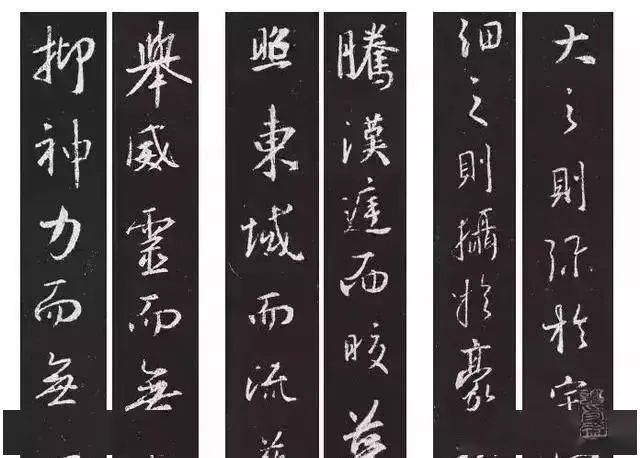 大之則弥於宇
細之則攝於豪
騰漢庭而皎
照東域而流
舉威靈而無
抑神力而無